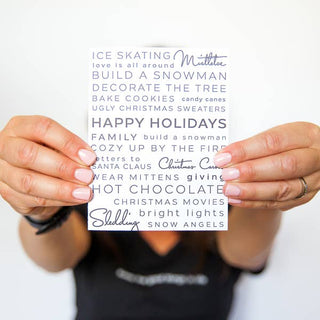 ICE SKATING Mistletoe
love is all around
BUILD A SNOWMAN
DECORATE THE TREE
BAKE COOKIES candy canes
UGLY CHRISTMAS SWEATERS
HAPPY HOLIDAYS
FAMILY build a snowman
COZY UP BY THE FIRE
letters to
SANTA CLAUS Christmas
WEAR MITTENS giving
HOT CHOCOLATE
CHRISTMAS MOVIES
Sledding bright lights
SNOW ANGELS